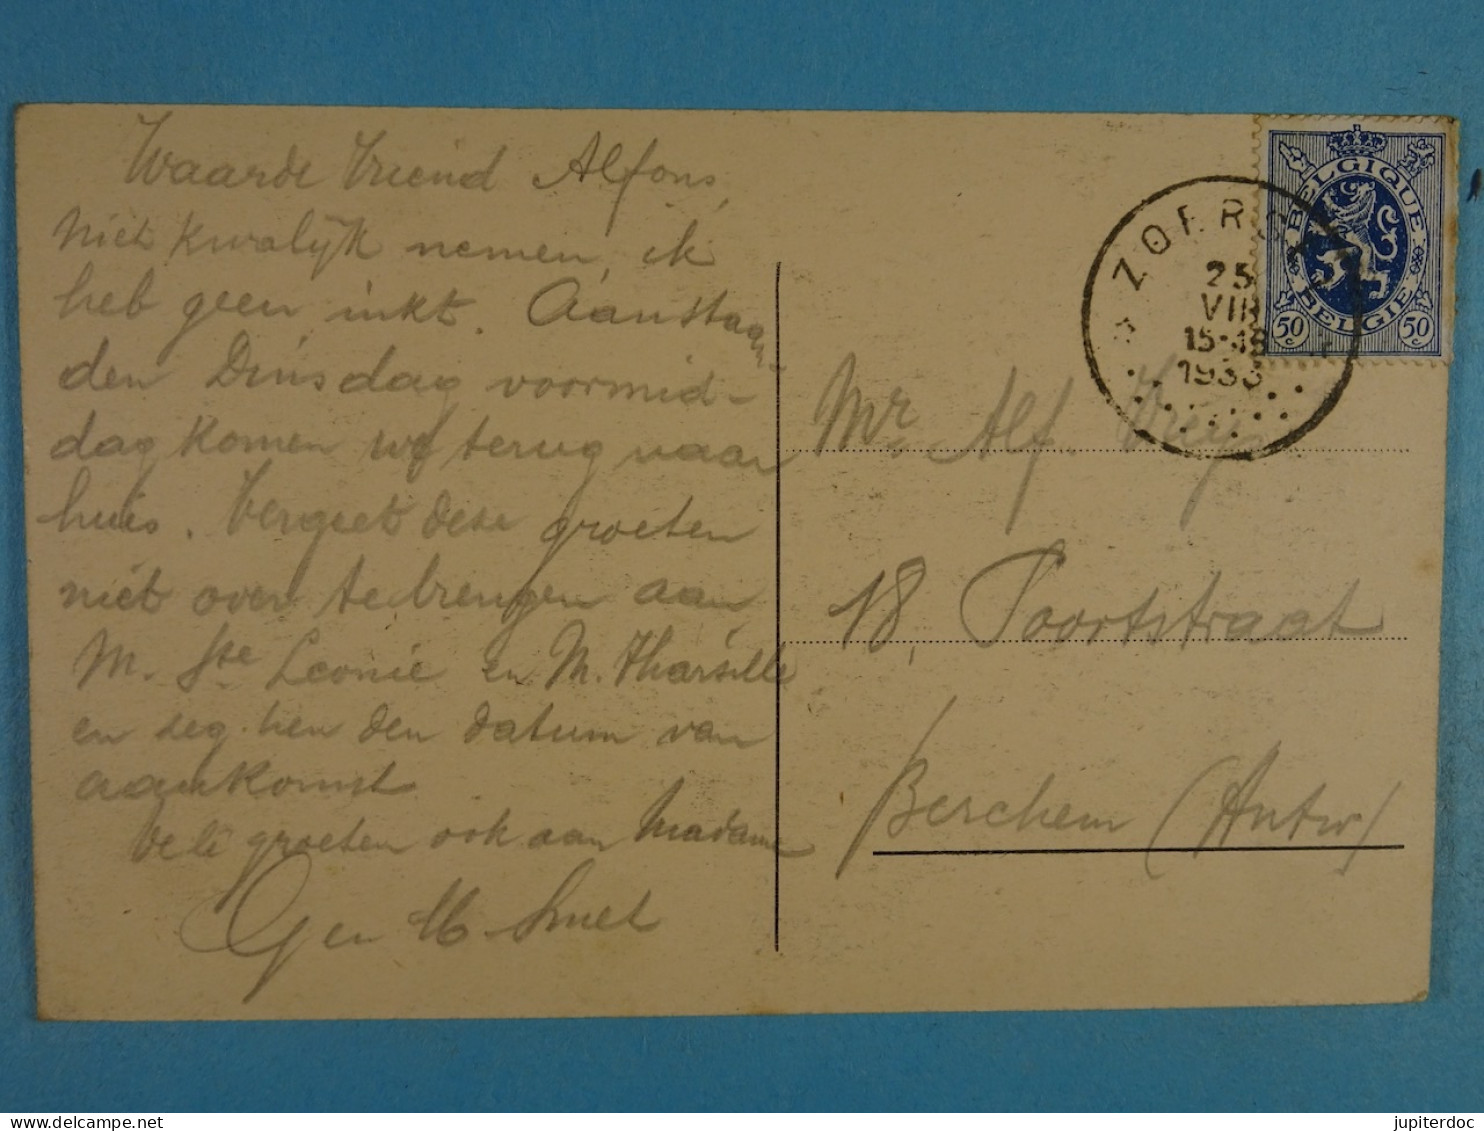 Waarde Vriend Alfons,
Niet kwalijk nemen, ik
heb geen inkt. Aanstaan-
den Dinsdag voormid-
dag komen we terug naar
huis. Vergeet deze groeten
niet over te brengen aan
M. Ste Leonie en M. Tharsille
en zeg hen den datum van
aankomst
Vele groeten ook aan Madame
G en M Smet
BELGIQUE
BELGIE
50c 50c
ZOERS
25
VIII
15-18
1933
Mr. Alf.
18, Poortstraat
Berchem (Antw.)
jupiterdoc